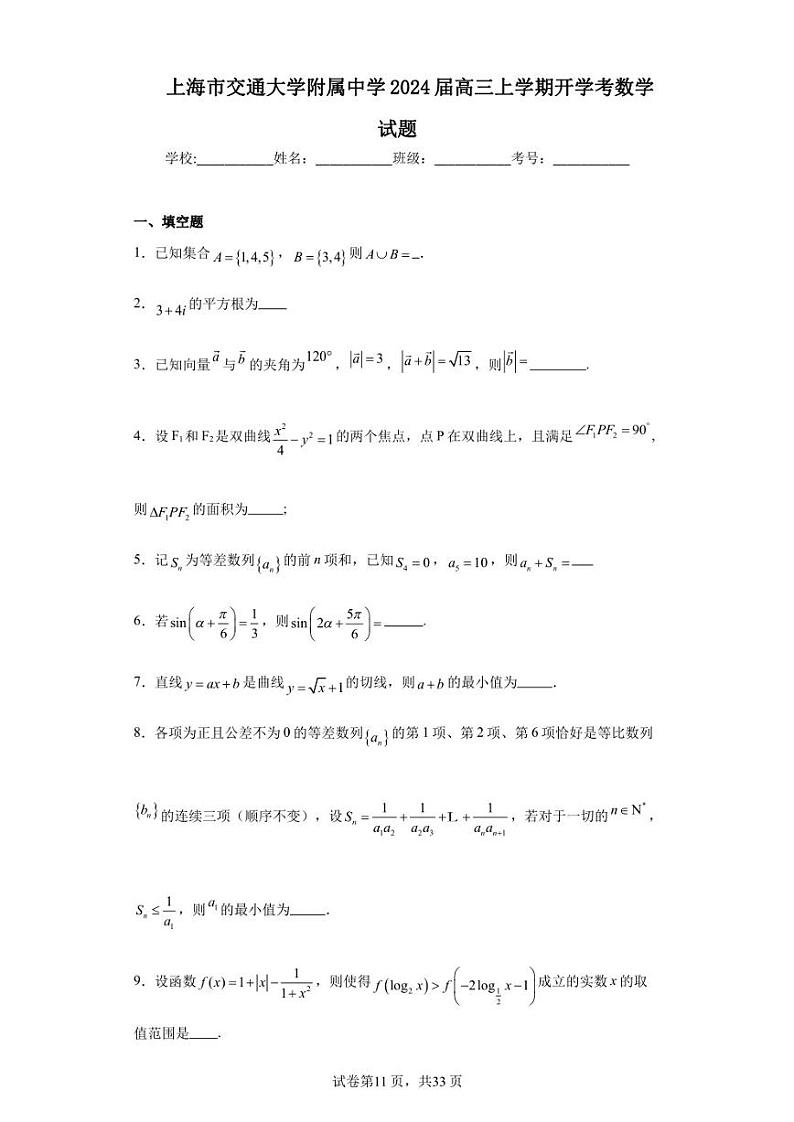 上海市交通大学附属中学2024届高三上学期开学考数学
试题
学校:___________姓名：___________班级：___________考号：___________
一、填空题
1．已知集合 A={1,4,5}，B={3,4} 则 A∪B=_.
2．3+4i 的平方根为____
3．已知向量 a⃗ 与 b⃗ 的夹角为 120°，|a⃗|=3，|a⃗+b⃗|=√13，则|b⃗|=________.
4．设 F₁和 F₂是双曲线 x²/4−y²=1 的两个焦点，点 P 在双曲线上，且满足 ∠F₁PF₂=90°，
则 ΔF₁PF₂ 的面积为_____;
5．记 Sₙ 为等差数列{aₙ}的前 n 项和，已知 S₄=0，a₅=10，则 aₙ+Sₙ=___
6．若 sin(α+π/6)=1/3，则 sin(2α+5π/6)=______.
7．直线 y=ax+b 是曲线 y=√x+1 的切线，则 a+b 的最小值为_____．
8．各项为正且公差不为 0 的等差数列{aₙ}的第 1 项、第 2 项、第 6 项恰好是等比数列
{bₙ}的连续三项（顺序不变），设 Sₙ=1/(a₁a₂)+1/(a₂a₃)+L+1/(aₙaₙ₊₁)，若对于一切的 n∈N*，
Sₙ≤1/a₁，则 a₁ 的最小值为_____．
9．设函数 f(x)=1+|x|−1/(1+x²)，则使得 f(log₂x)>f(−2log_{1/2}x−1) 成立的实数 x 的取
值范围是____．
试卷第11页，共33页